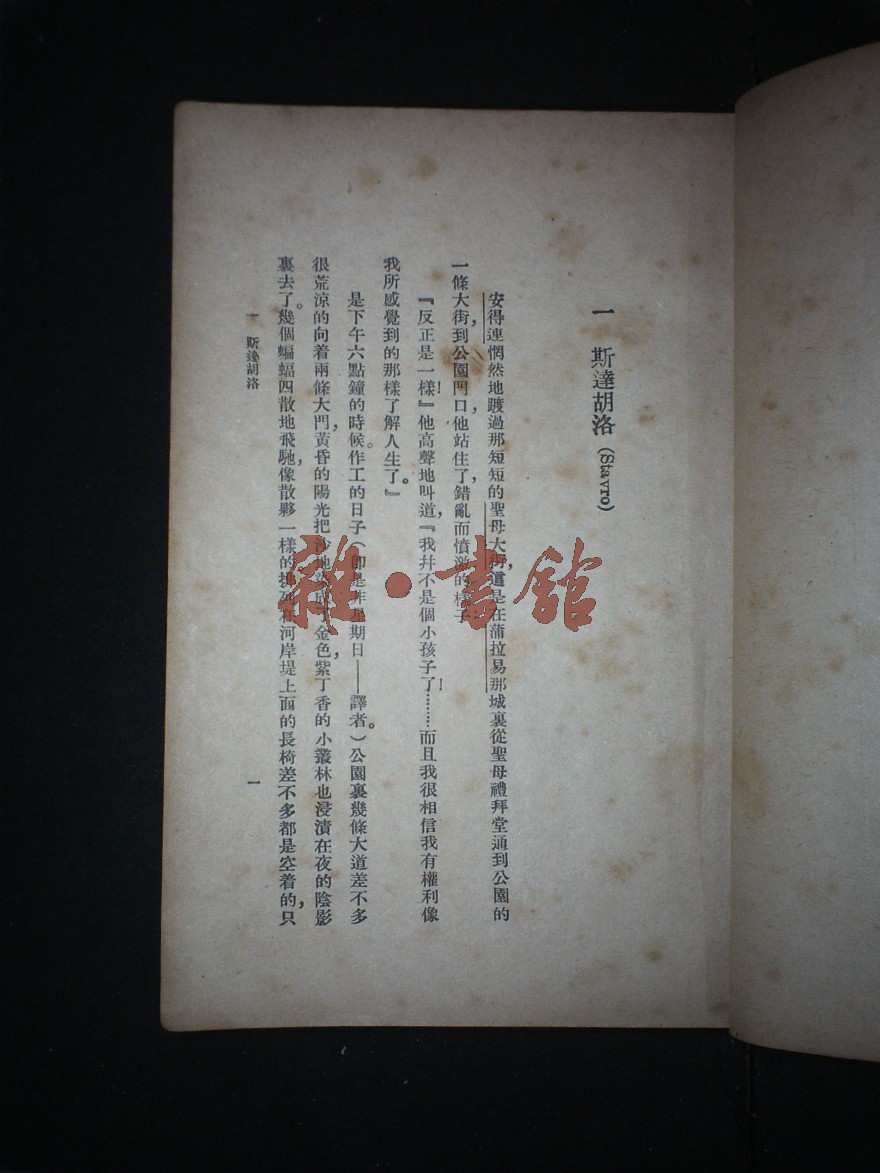 一 斯達胡洛 (Stavro)
安得連惘然地踱過那短短的聖母大街，這是在蒲拉易那城裏從聖母禮拜堂通到公園的
一條大街，到公園門口，他站住了，錯亂而憤激的樣子
『反正是一樣！』他高聲地叫道，『我幷不是個小孩子了！………而且我很相信我有權利像
我所感覺到的那樣了解人生了。』
是下午六點鐘的時候。作工的日子（卽是非星期日——譯者。）公園裏幾條大道差不多
很荒涼的向着兩條大門，黃昏的陽光把沙地染成了金色，紫丁香的小叢林也浸漬在夜的陰影
裏去了。幾個蝙蝠四散地飛馳，像散夥一樣的排列在河岸堤上面的長椅差不多都是空着的，只
一 斯達胡洛
一
雜·書館